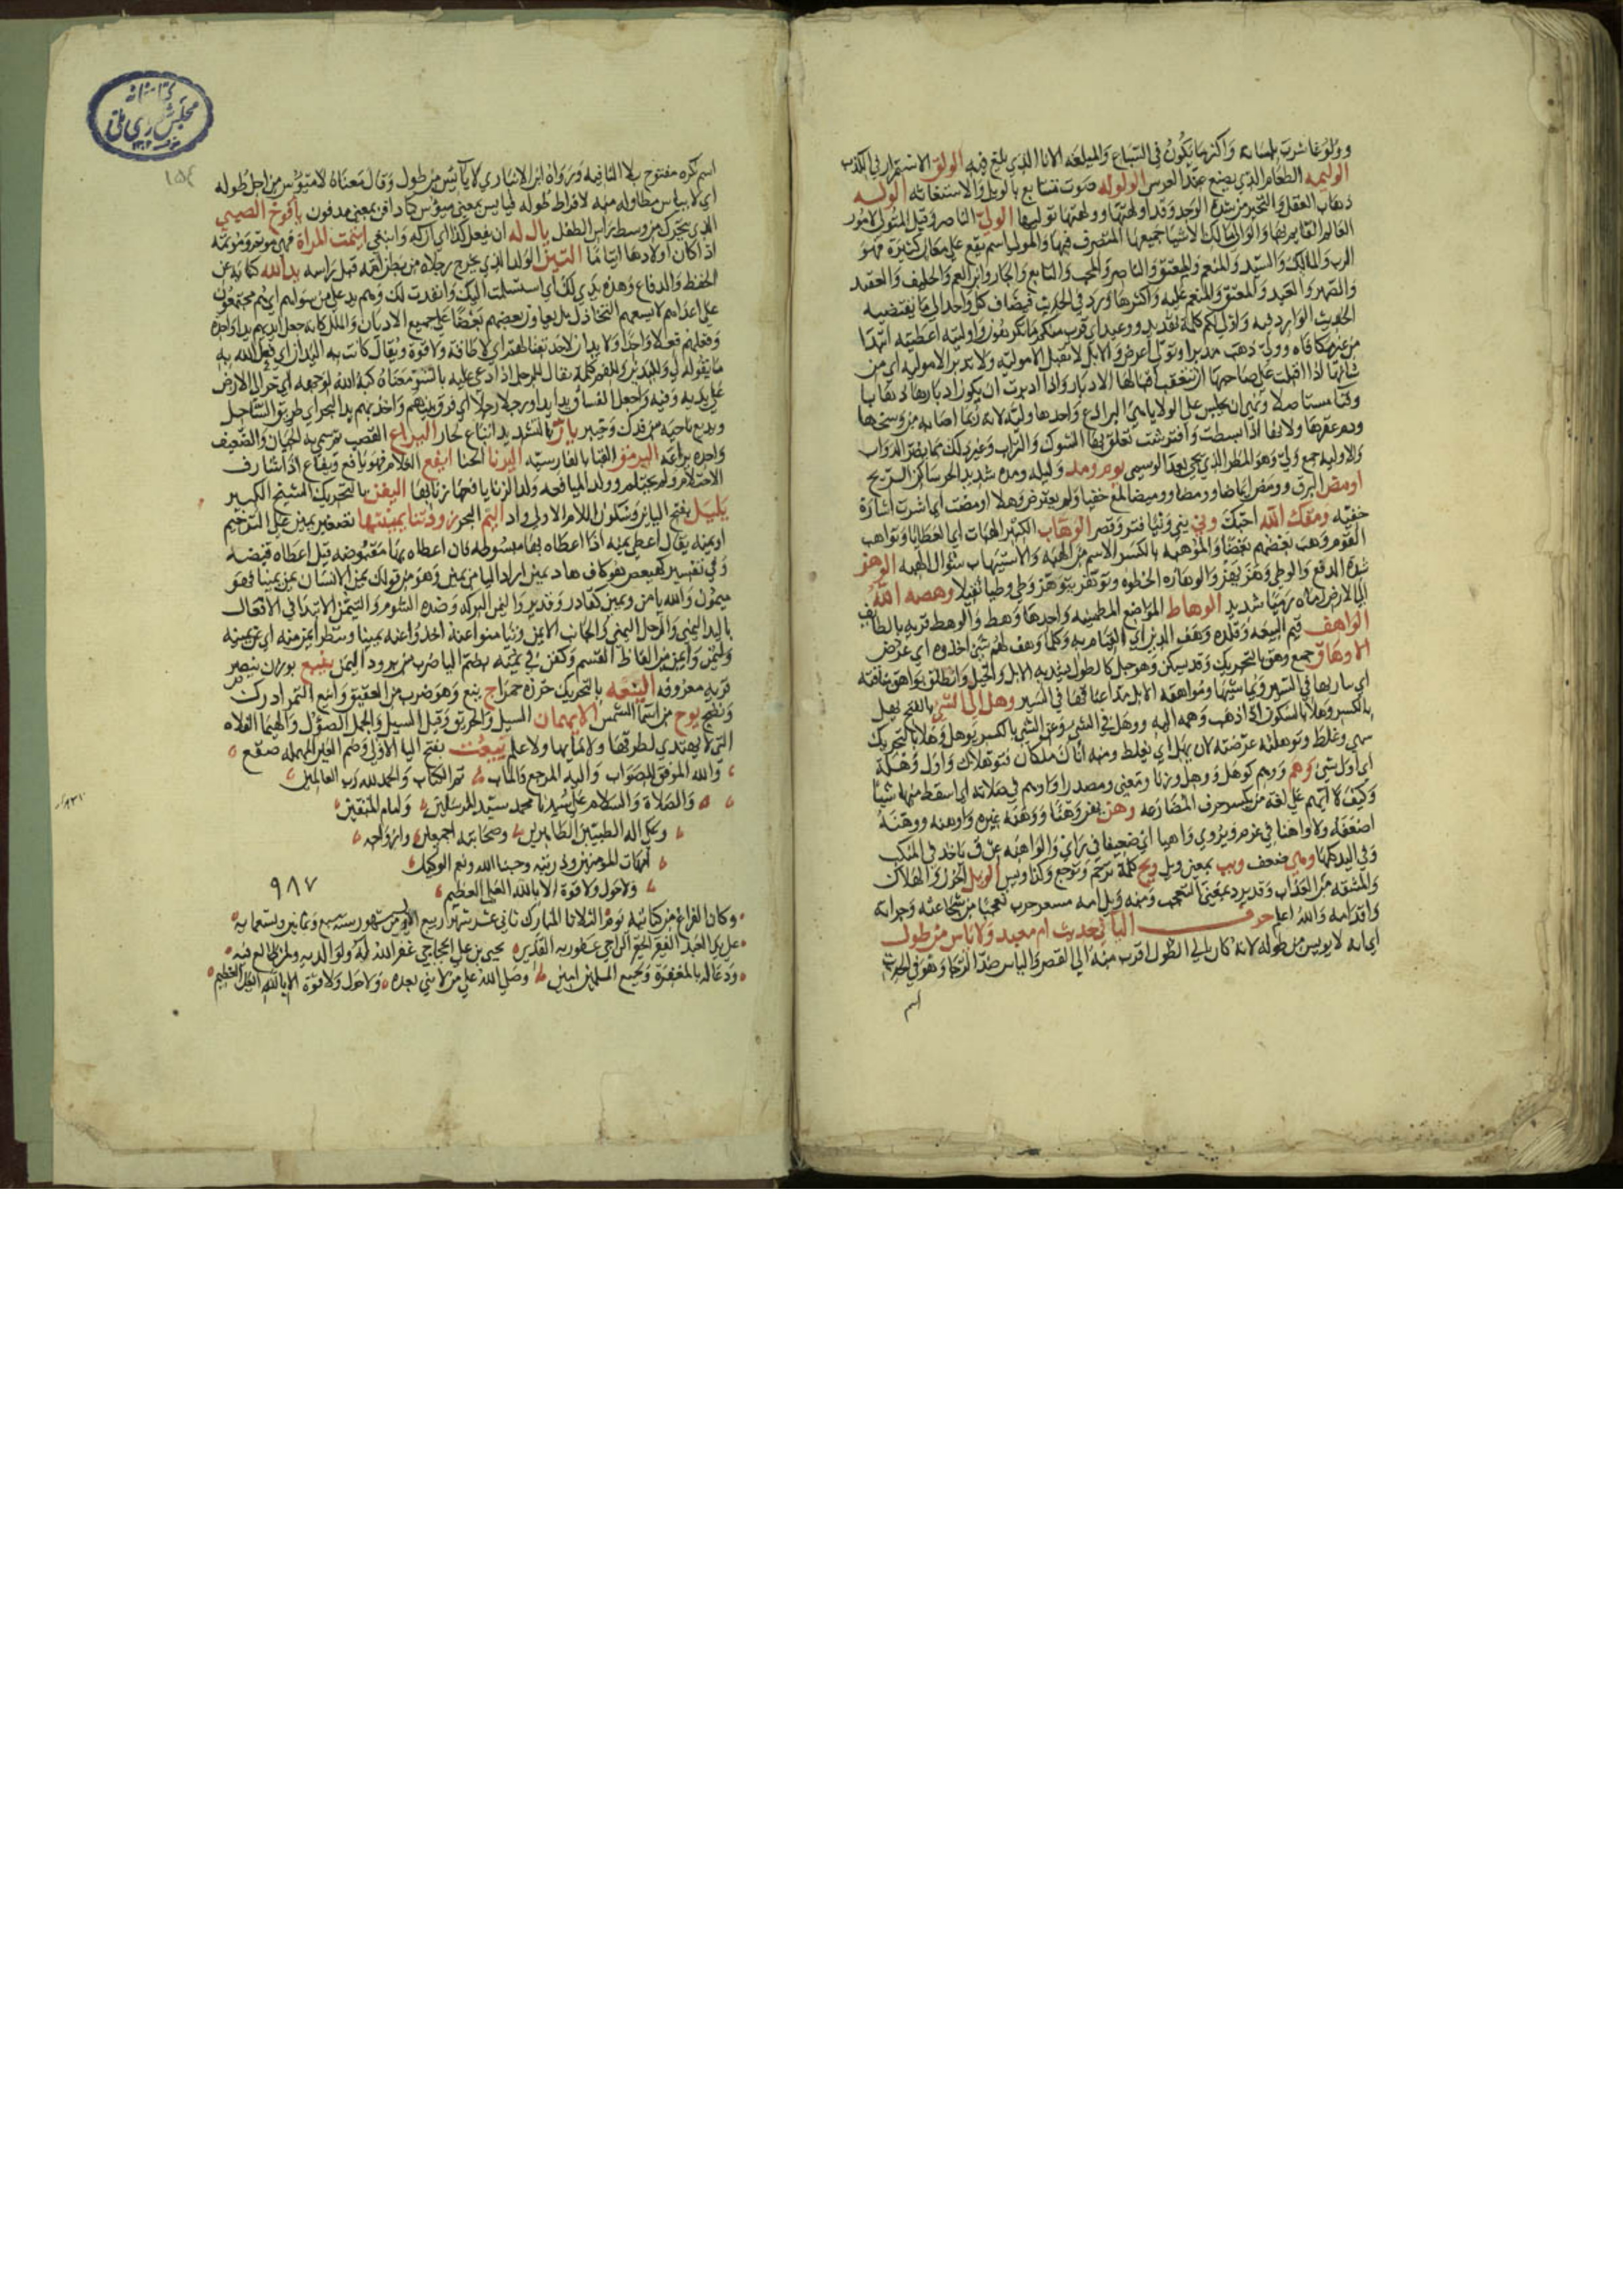 وولوغا شرب بلسانه واكثر ما يكون في السباع والميلغه الانا الذي يلغ فيه الولق الاستمرار في الكذب
الوليمه الطعام الذي يصنع عند العرس الولوله صوت متتابع بالويل والاستغاثه الوله
ذهاب العقل والتحير من شدة الوجد وقد اولهتها وولهتها توليها الولي الناصر وقيل المتولي لامور
العالم القايم بها والوالي مالك الاشيا جميعها المتصرف فيها والمولى اسم يقع على معان كثيرة فهو
الرب والمالك والسيد والمنعم والمعتق والناصر والمحب والتابع والجار وابن العم والحليف والعقيد
والصهر والعبد والمعتق والمنعم عليه واكثرها ورد في الحديث فيضاف كل واحد الي ما يقتضيه
الحديث الوارد فيه واولى لكم كلمة تهديد ووعيد اي قرب منكم ما تكرهون واوليته اعطيته ابتدا
من غير مكافاه وولي ذهب مدبرا وتولى اعرض والابل لا تقبل الا موليه ولا تدبر الا موليه اي من
شانها اذا اقبلت على صاحبها ان يتعقب اقبالها الادبار واذا ادبرت ان يكون ادبارها ذهابا
وفنا مستاصلا ونهى ان يجلس على الولايا هي البرادع واحدها وليه لانه ربما اصابه من وسخها
ودم عقرها ولانها اذا بسطت وافترشت تعلق بها الشوك والتراب وغير ذلك مما يضر الدواب
والاوليه جمع ولي وهو المطر الذي يجي بعد الوسمي يوم ومد وليله ومده شديد الحر ساكن الريح
اومض البرق وومض ايماضا وومضا ووميضا لمع خفيا ولم يعترض وهلا اومضت اي اشرت اشارة
خفيه ومقك الله احبك وني يني ونيا فتر وقصر الوهاب الكثير الهبات اي العطايا وتواهب
القوم وهب بعضهم بعضا والموهبه بالكسر الاسم من الهبه والاستيهاب سوال الهبه الوهز
شدة الدفع والوطي وهز يهز والوهازه الخطوه وتوهز يتوهز وطي وطيا ثقيلا وهصه الله
الى الارض رماه رميا شديدا الوهاط المواضع المطمينه واحدها وهط والوهط قريه بالطايف
الواهف قيم البيعه وقلده وهف الدين اي القيام به وكلما وهف لهم شي اخذوه اي عرض
الاوهاق جمع وهق بالتحريك وقد يسكن وهو حبل كالطول يشد به الابل والخيل وانطلق يواهق ناقته
اي يباريها في السير ويماشيها ومواهقه الابل مد اعناقها في السير وهل الى الشي بالفتح يهل
بالكسر وهلا بالسكون اذا ذهب وهمه اليه ووهل في الشي وعن الشي بالكسر يوهل وهلا بالتحريك
سهى وغلط وتوهلته عرضته لان يهل اي يغلط ومنه اتاك ملكان فتوهلاك واول وهلة
اي اول شي وهم وهم كوهل ووهل وزنا ومعنى ومصدرا واوهم في صلاته اي اسقط منها شيا
وكيف لا ايهم على لغه من يكسر حرف المضارعه وهن يهن وهنا ووهنه غيره واوهنه ووهنه
اضعفه ولا واهنا في عزم ويروي واهيا اي ضعيفا في راي والواهنه عرق ياخذ في المنكب
وفي اليد كلها وهي ضعف ويب بمعنى ويل ويح كلمة ترحم وتوجع وكذا ويس الويل الحزن والهلاك
والمشقه من العذاب وقد يرد بمعنى التعجب ومنه ويل امه مسعر حرب تعجبا من شجاعته وجراته
واقدامه والله اعلم حرف اليا في حديث ام معبد ولا ياس من طول
اي انه لا يويس من طوله لانه كان الي الطول اقرب منه الي القصر والياس ضد الرجا وهو في الحديث
اسم
كتابخانه مجلس شورای ملی
١٥٤
اسم نكره مفتوح بلا النافيه ورواه ابن الانباري لا يائس من طول وقال معناه لا ميؤس من اجل طوله
اي لا يياس مطاوله منه لافراط طوله فيايس بمعنى ميؤس كما دافق بمعنى مدفوق يافوخ الصبي
الذي يتحرك من وسط راس الطفل يال له ان يفعل كذا اي آن له وانبغى ايتمت المراة فهي موتم وموتمه
اذا كان اولادها ايتاما اليتن الولد الذي يخرج رجلاه من بطن امه قبل راسه يد الله كنايه عن
الحفظ والدفاع وهذه يدي لك اي استسلمت اليك وانقدت لك وهم يد على من سواهم اي هم مجتمعون
على اعدايهم لا يسعهم التخاذل بل يعاون بعضهم بعضا على جميع الاديان والملل كانه جعل ايديهم يدا واحدة
وفعلهم فعلا واحدا ولا يدان لاحد بقتالهم اي لا طاقة ولا قوة ويقال كانت به اليدان اي فعل الله به
ما يقوله لي ولليدين وللفم كلمة تقال للرجل اذا دعي عليه بالسوء معناه كبه الله لوجهه اي خر الى الارض
على يديه وفيه واجعل الفساق يدا يدا ورجلا رجلا اي فرق بينهم واخذ بهم يد البحر اي طريق الساحل
ويديع ناحيه من فدك وخيبر يار بالتشديد اتباع لحار اليراع القصب ثم سمي به الجبان والضعيف
واحده يراعه اليرمق القبا بالفارسيه اليرنا الحنا ايفع الغلام فهو يافع ويفاع اذا شارف
الاحتلام ولم يحتلم وولد الميافعه ولد الزنا يافعها زنا بها اليفن بالتحريك الشيخ الكبير
يليل بفتح الياين وسكون اللام الاولى واد اليم البحر وزودتنا يمينتها تصغير يمين على الترخيم
او يمنه يقال اعطى يمنه اذا اعطاه بها مبسوطه فان اعطاه بها مقبوضه قيل اعطاه قبضه
وفي تفسير كهيعص هو كاف هاد يمين اراد اليا من يمين وهو من قولك يمن الانسان يمن يمينا فهو
ميمون والله يامن ويمين كقادر وقدير واليمن البركه وضده الشوم والتيمن الابتدا في الافعال
باليد اليمنى والرجل اليمنى والجانب الايمن وتيامنوا عنه اخذوا عنه يمينا وينظر ايمن منه اي عن يمينه
وليمن وايمن من الفاظ القسم وكفن في يمنه بضم اليا ضرب من برود اليمن ينبع بوزن ينصر
قريه معروفه الينعه بالتحريك خرزه حمرا ج ينع وهو ضرب من العقيق واينع الثمر ادرك
ونضج يوح من اسما الشمس الايهمان السيل والحريق وقيل السيل والجمل الصؤول واليهما الفلاه
التي لا يهتدي لطرقها ولا ما بها ولا علم ييعث بفتح اليا الاولى وضم العين المهمله صقع
والله الموفق للصواب واليه المرجع والماب تم الكتاب والحمد لله رب العالمين
والصلاة والسلام على سيدنا محمد سيد المرسلين وامام المتقين
وعلى اله الطيبين الطاهرين وصحابته اجمعين وازواجه
امهات المومنين وذريته وحسبنا الله ونعم الوكيل
ولا حول ولا قوة الا بالله العلي العظيم
٩٨٧
وكان الفراغ من كتابته يوم الثلاثا المبارك ثاني عشر شهر ربيع الاول من شهور سنة سبع وثمانين وتسعمايه
على يد العبد الفقير الحقير الراجي عفو ربه القدير يحيى بن علي الحجاجي غفر الله له ولوالديه ولمن طالع فيه
ودعا له بالمغفرة وجميع المسلمين امين وصلى الله على من لا نبي بعده ولا حول ولا قوة الا بالله العلي العظيم